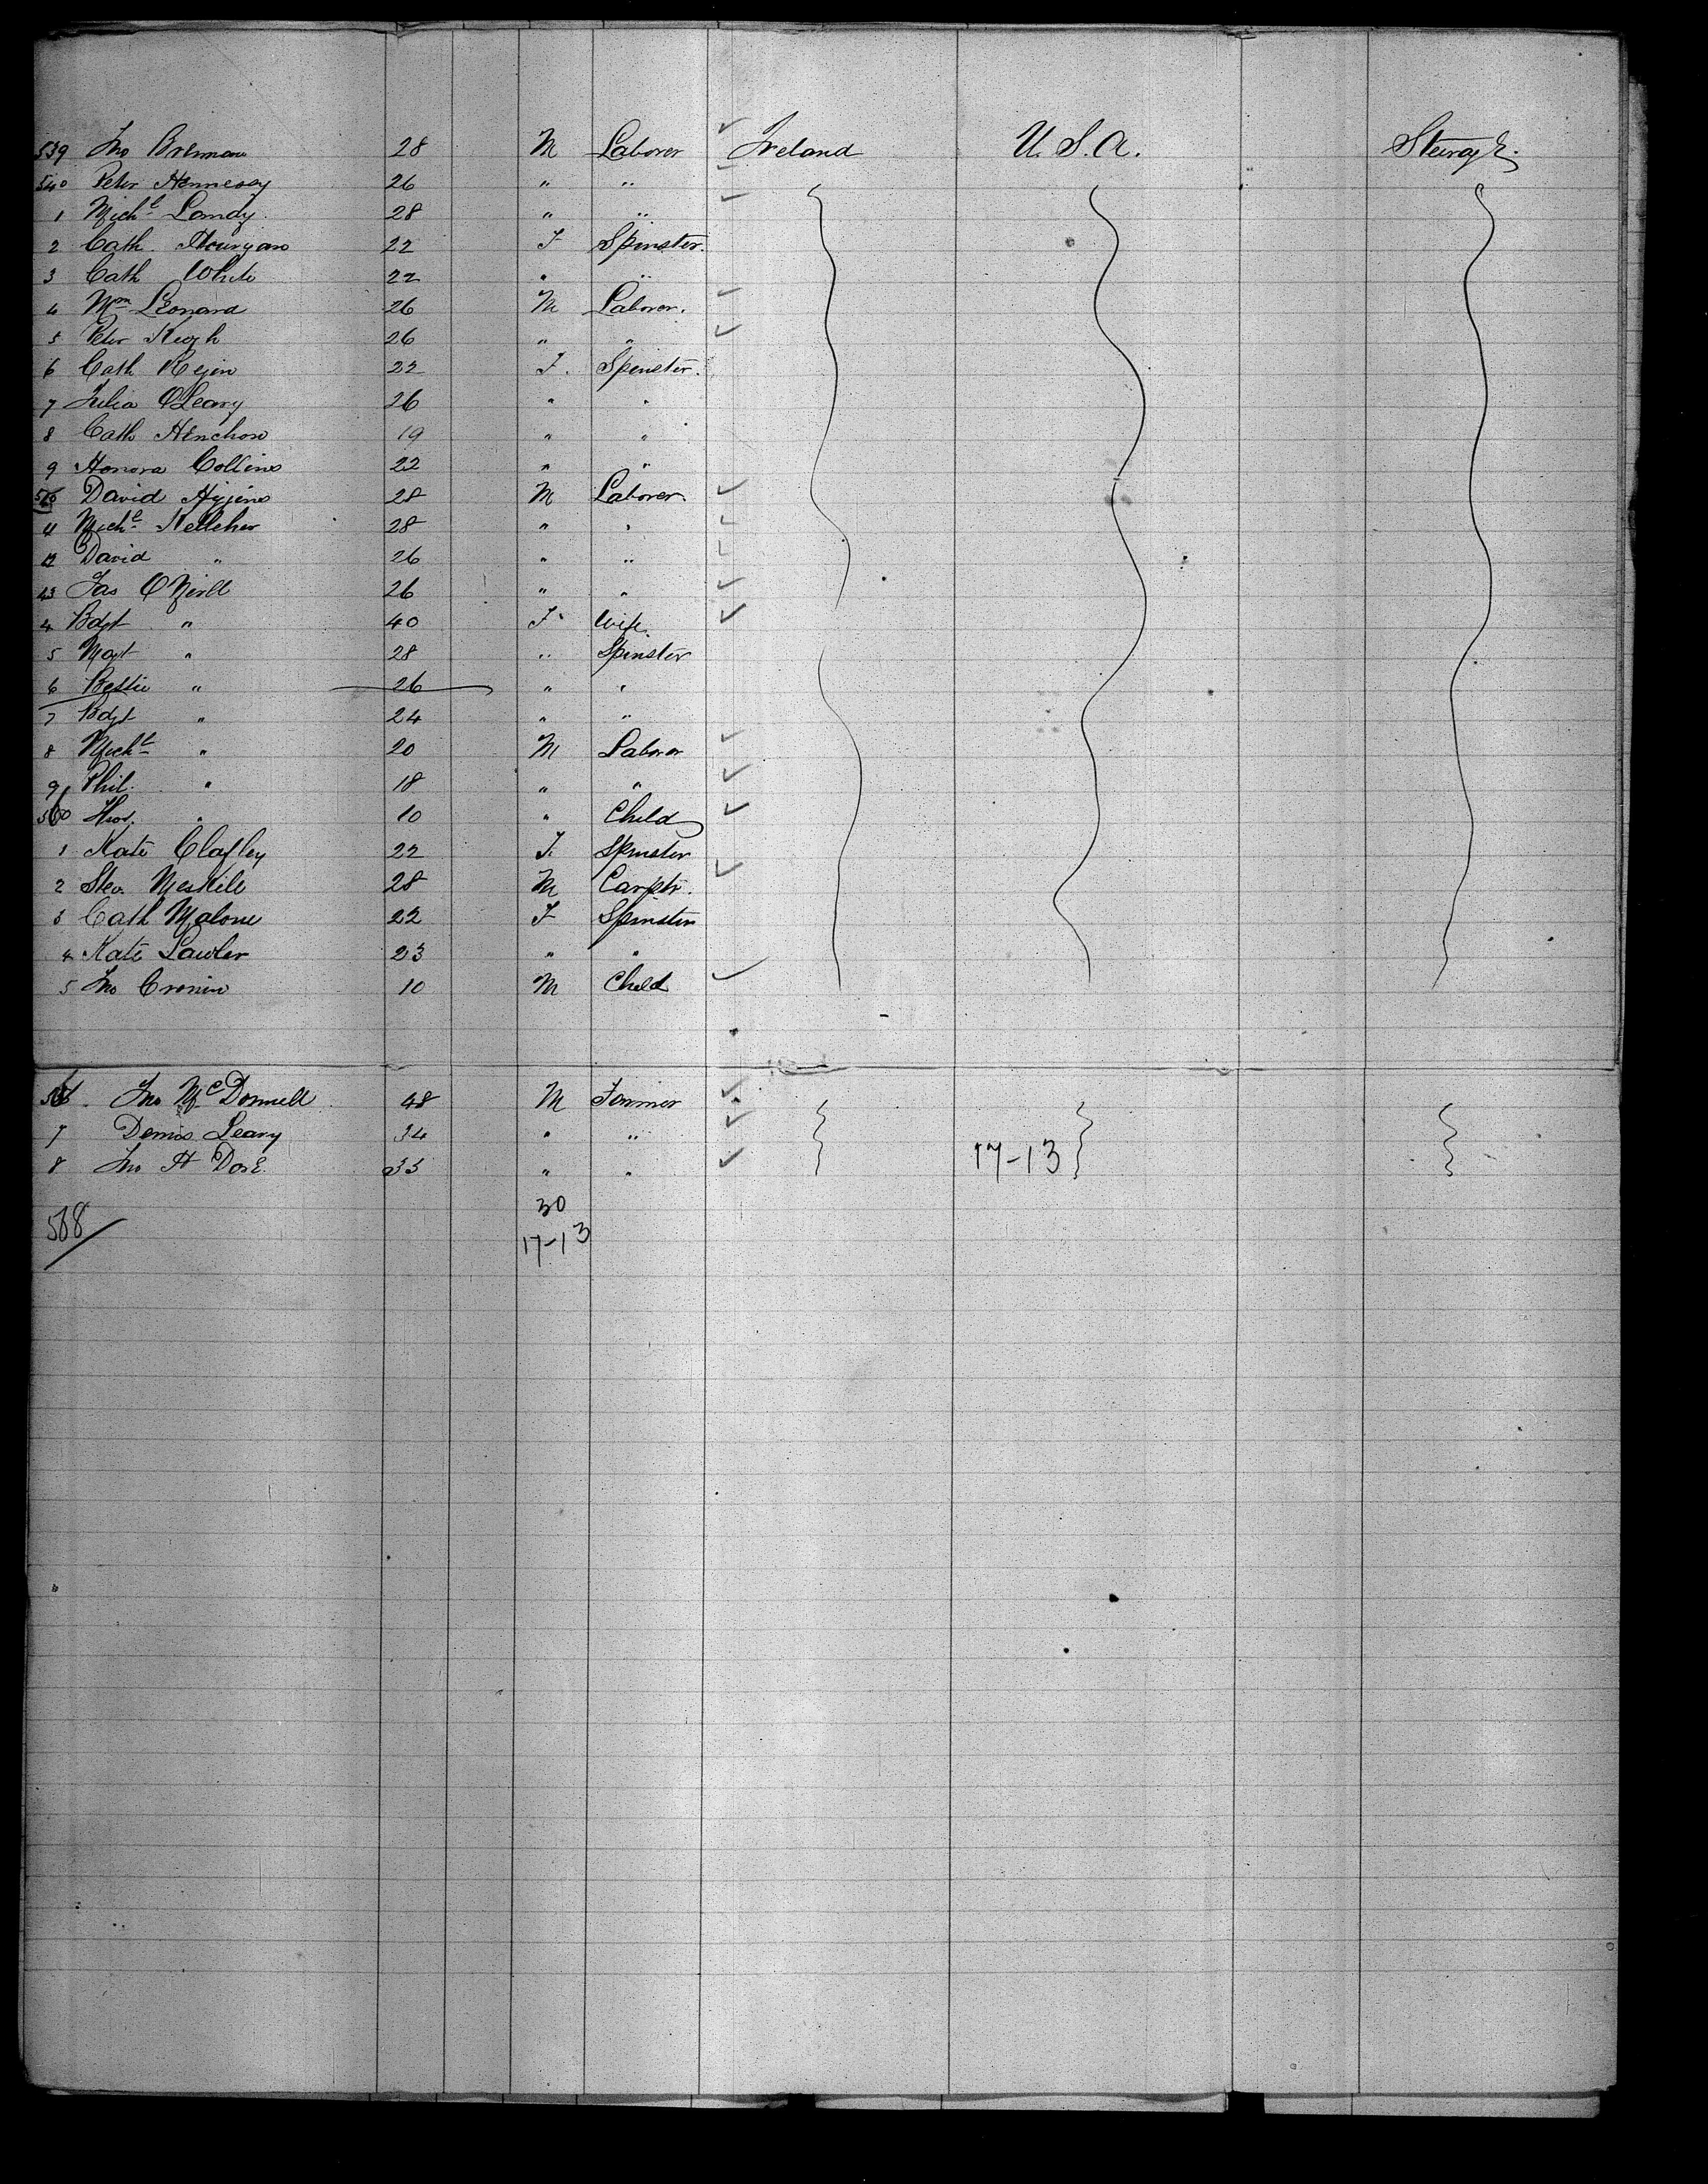 539 Jno Brennan 28 M Laborer Ireland U.S.A. Steerage.
540 Peter Hennessy 26 " "
1 Michl Landy 28 " "
2 Cath 22 F Spinster.
3 Cath White 22 " "
4 Wm Leonard 26 M Laborer.
5 Peter Keogh 26 " "
6 Cath Regin 22 F. Spinster.
7 Julia O'Leary 26 " "
8 Cath Henchon 19 " "
9 Honora Collins 22 " "
550 David Higgins 28 M Laborer.
11 Michl Kelleher 28 " "
12 David " 26 " "
13 Jas O'Neill 26 " "
4 Bdgt " 40 F Wife.
5 Mgt " 28 " Spinster
6 Bessie " 26 " "
7 Bdgt " 24 " "
8 Michl " 20 M Laborer
9 Phil. " 18 " "
560 Thos. " 10 " Child
1 Kate Clafley 22 F. Spinster
2 Ste. Meskill 28 M Carptr.
3 Cath Malone 22 F Spinster
4 Kate Lawler 23 " "
5 Jno Cronin 10 M Child
566. Jno McDonnell 48 M Farmer
7 Dennis Leary 34 " "
8 Jno H Dore 35 " " 17-13
30
568
17-13